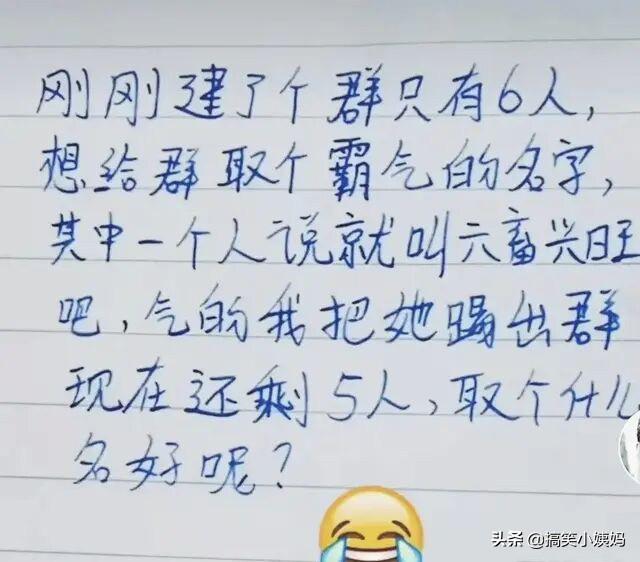 刚刚建了个群只有6人,
想给群取个霸气的名字,
其中一个人说就叫六畜兴旺
吧,气的我把她踢出群
现在还剩5人,取个什么
名好呢?
头条 @搞笑小姨妈